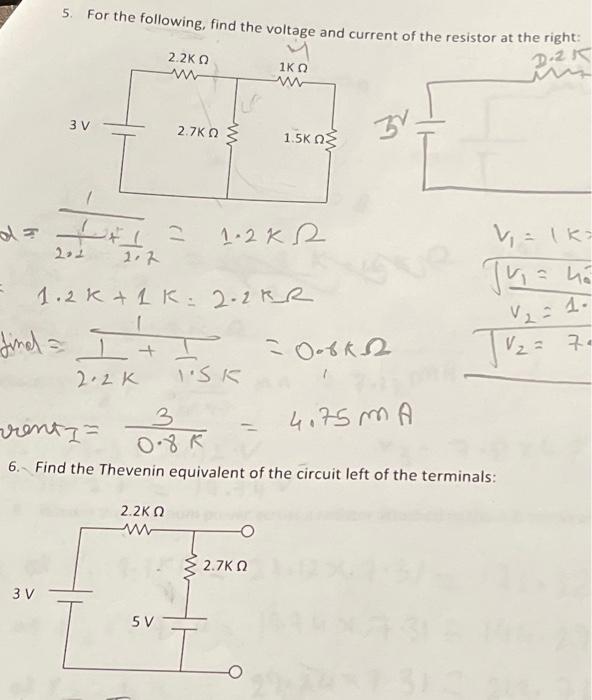 5. For the following, find the voltage and current of the resistor at the right:
2.2K Ω
1K Ω
3 V
2.7K Ω
1.5K Ω
3V
1
1/2.2 + 1/2.7 = 1.2 K Ω
V₁ = 1K
1.2 K + 1 K = 2.2 K Ω
V₁ =
V₂ = 1.
1
1/2.2 K + 1/1.5 K = 0.8 K Ω
V₂ = 7.
I = 3/0.8 K = 4.75 m A
6. Find the Thevenin equivalent of the circuit left of the terminals:
2.2K Ω
2.7K Ω
3 V
5 V